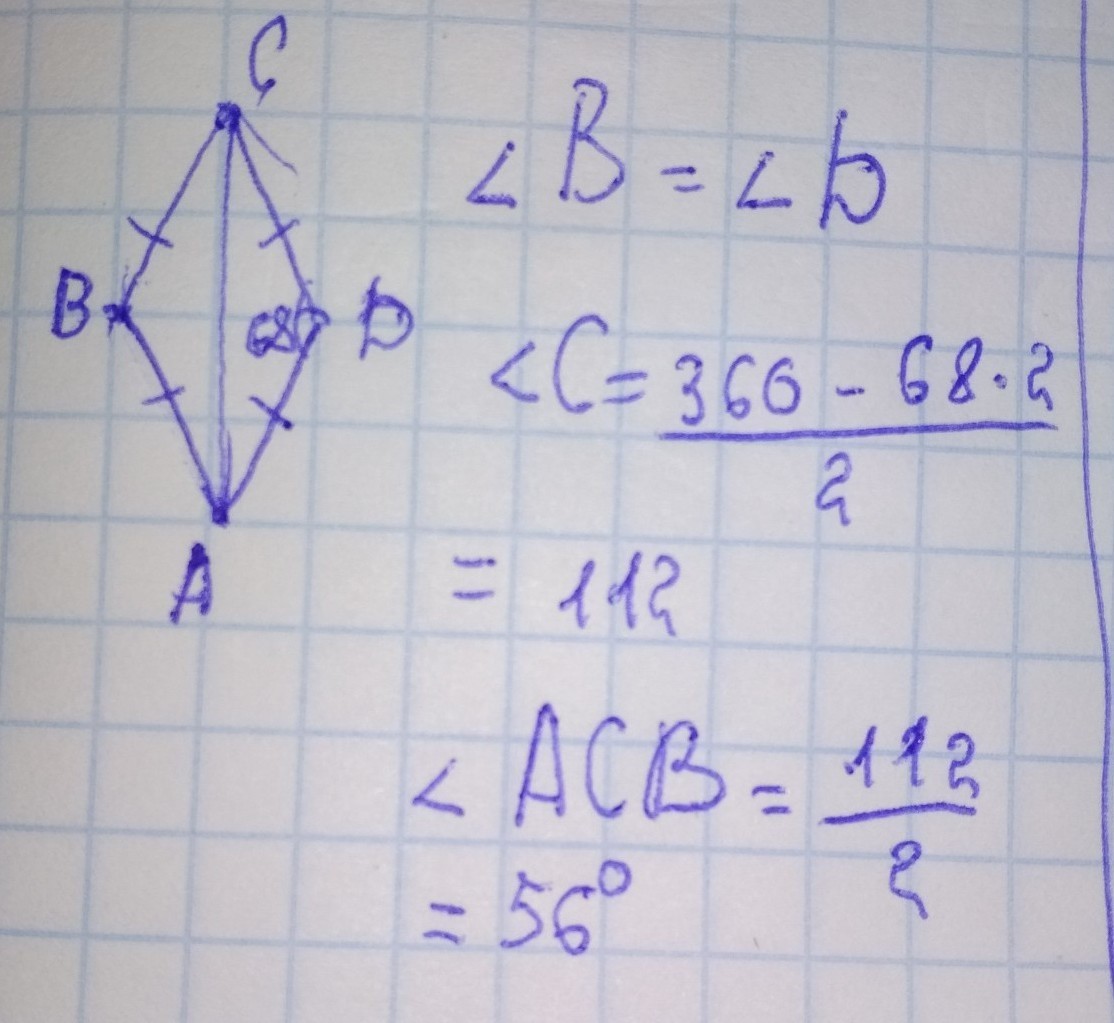 C
B
68°
D
A
∠B = ∠D
∠C = 360 - 68·2 / 2
= 112
∠ACB = 112 / 2
= 56°